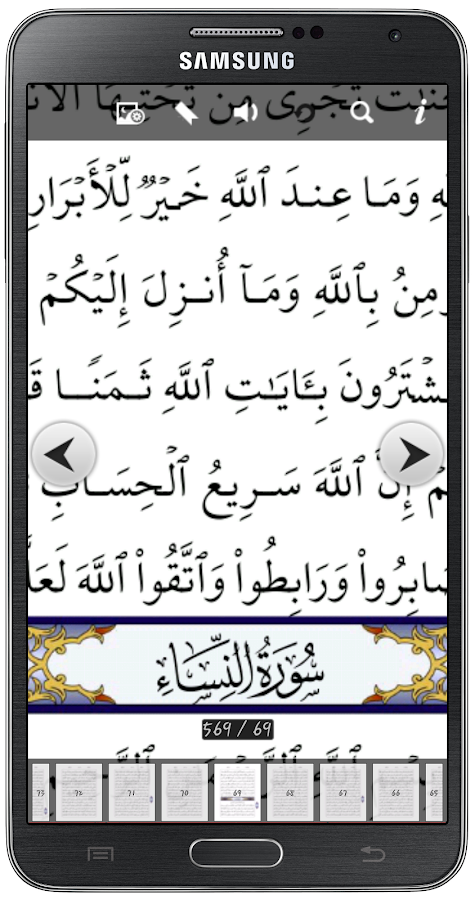 SAMSUNG
جنات تجرى من تحتها الأن
ـهِ وَمَا عِندَ ٱللَّهِ خَيْرٌ لِّلْأَبْرَارِ
ـؤْمِنُ بِٱللَّهِ وَمَآ أُنزِلَ إِلَيْكُمْ
ـشْتَرُونَ بِـَٔايَـٰتِ ٱللَّهِ ثَمَنًا قَـ
ـمْ إِنَّ ٱللَّهَ سَرِيعُ ٱلْحِسَابِ
ـصَابِرُوا۟ وَرَابِطُوا۟ وَٱتَّقُوا۟ ٱللَّهَ لَعَلَّـ
سُورَةُ النِّسَاءِ
569 / 69
73 72 71 70 69 68 67 66 65